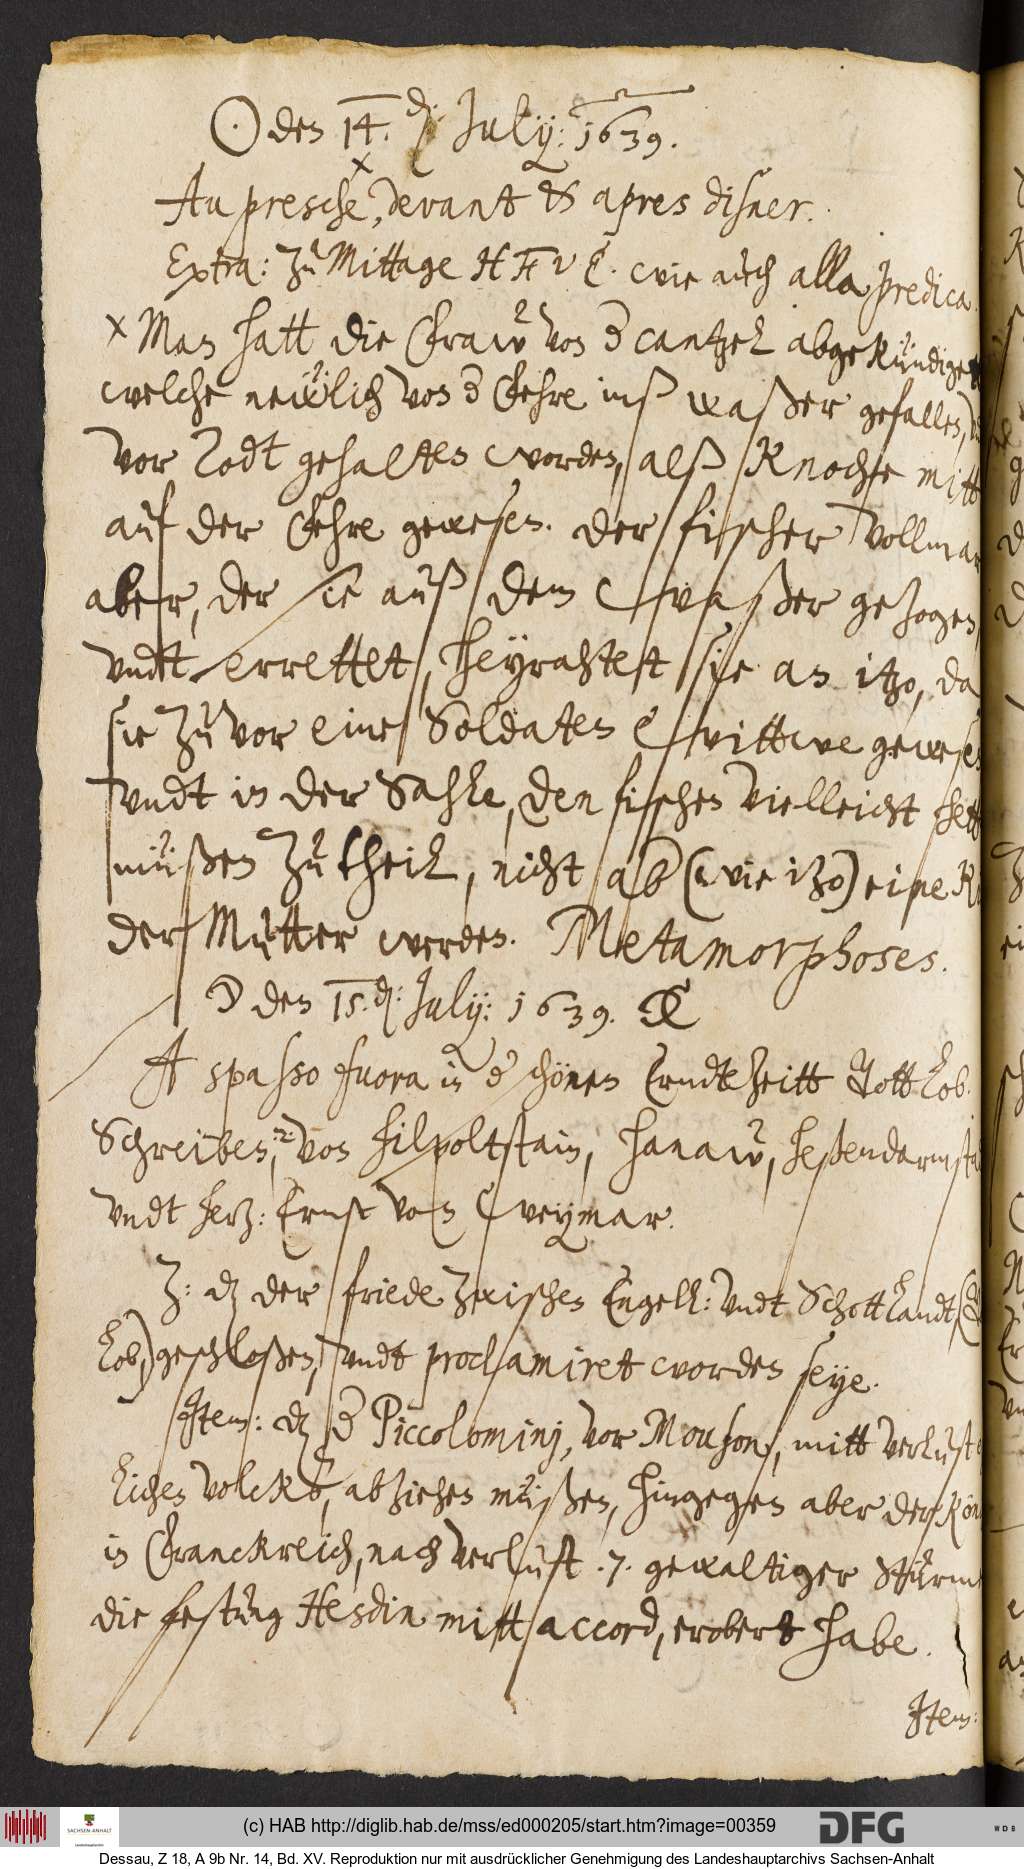 ☉ den 14. d: July: 1639.
Au presche, devant et apres disner.
Extra: zu Mittage H F V E. wie auch alla predica.
× Man hatt die Fraw von d cantzel abgekündiget
welche newlich von d Fehre inß waßer gefallen,
vor Todt gehalten worden, alß Knoche mitt
auf der Fehre gewesen. Der fischer Vollmar
aber, der sie auß dem Waßer gezogen,
vndt errettet, heyrahtett sie an itzo, da
sie zuvor eine Soldaten Wittwe gewesen
vndt in der Sahle, den fischen vielleicht hett
müßen zu theil, nicht ab (wie itzo) eine
der Mutter werden. Metamorphoses.
☽ den 15. d: July: 1639.
A spasso fuora in d schönen Erndtzeitt Gott lob.
Schreiben, von Hilpoltstain, Hanaw, Heßendarmsta
vndt Herz: Ernst von Weymar.
Z: dz der friede zwischen Engell: vndt Schottlandt (
lob) geschloßen, vndt proclamiret worden seye.
Item: dz d Piccolominj, vor Mouson, mitt verlust
lichen volcks, abziehen müßen, hingegen aber der Kön
in Franckreich, nach verlust .7. gewaltiger Stürme
die festung Hesdin mitt accord, erobert habe.
Item:
(c) HAB http://diglib.hab.de/mss/ed000205/start.htm?image=00359
SACHSEN-ANHALT
DFG
WDB
Dessau, Z 18, A 9b Nr. 14, Bd. XV. Reproduktion nur mit ausdrücklicher Genehmigung des Landeshauptarchivs Sachsen-Anhalt